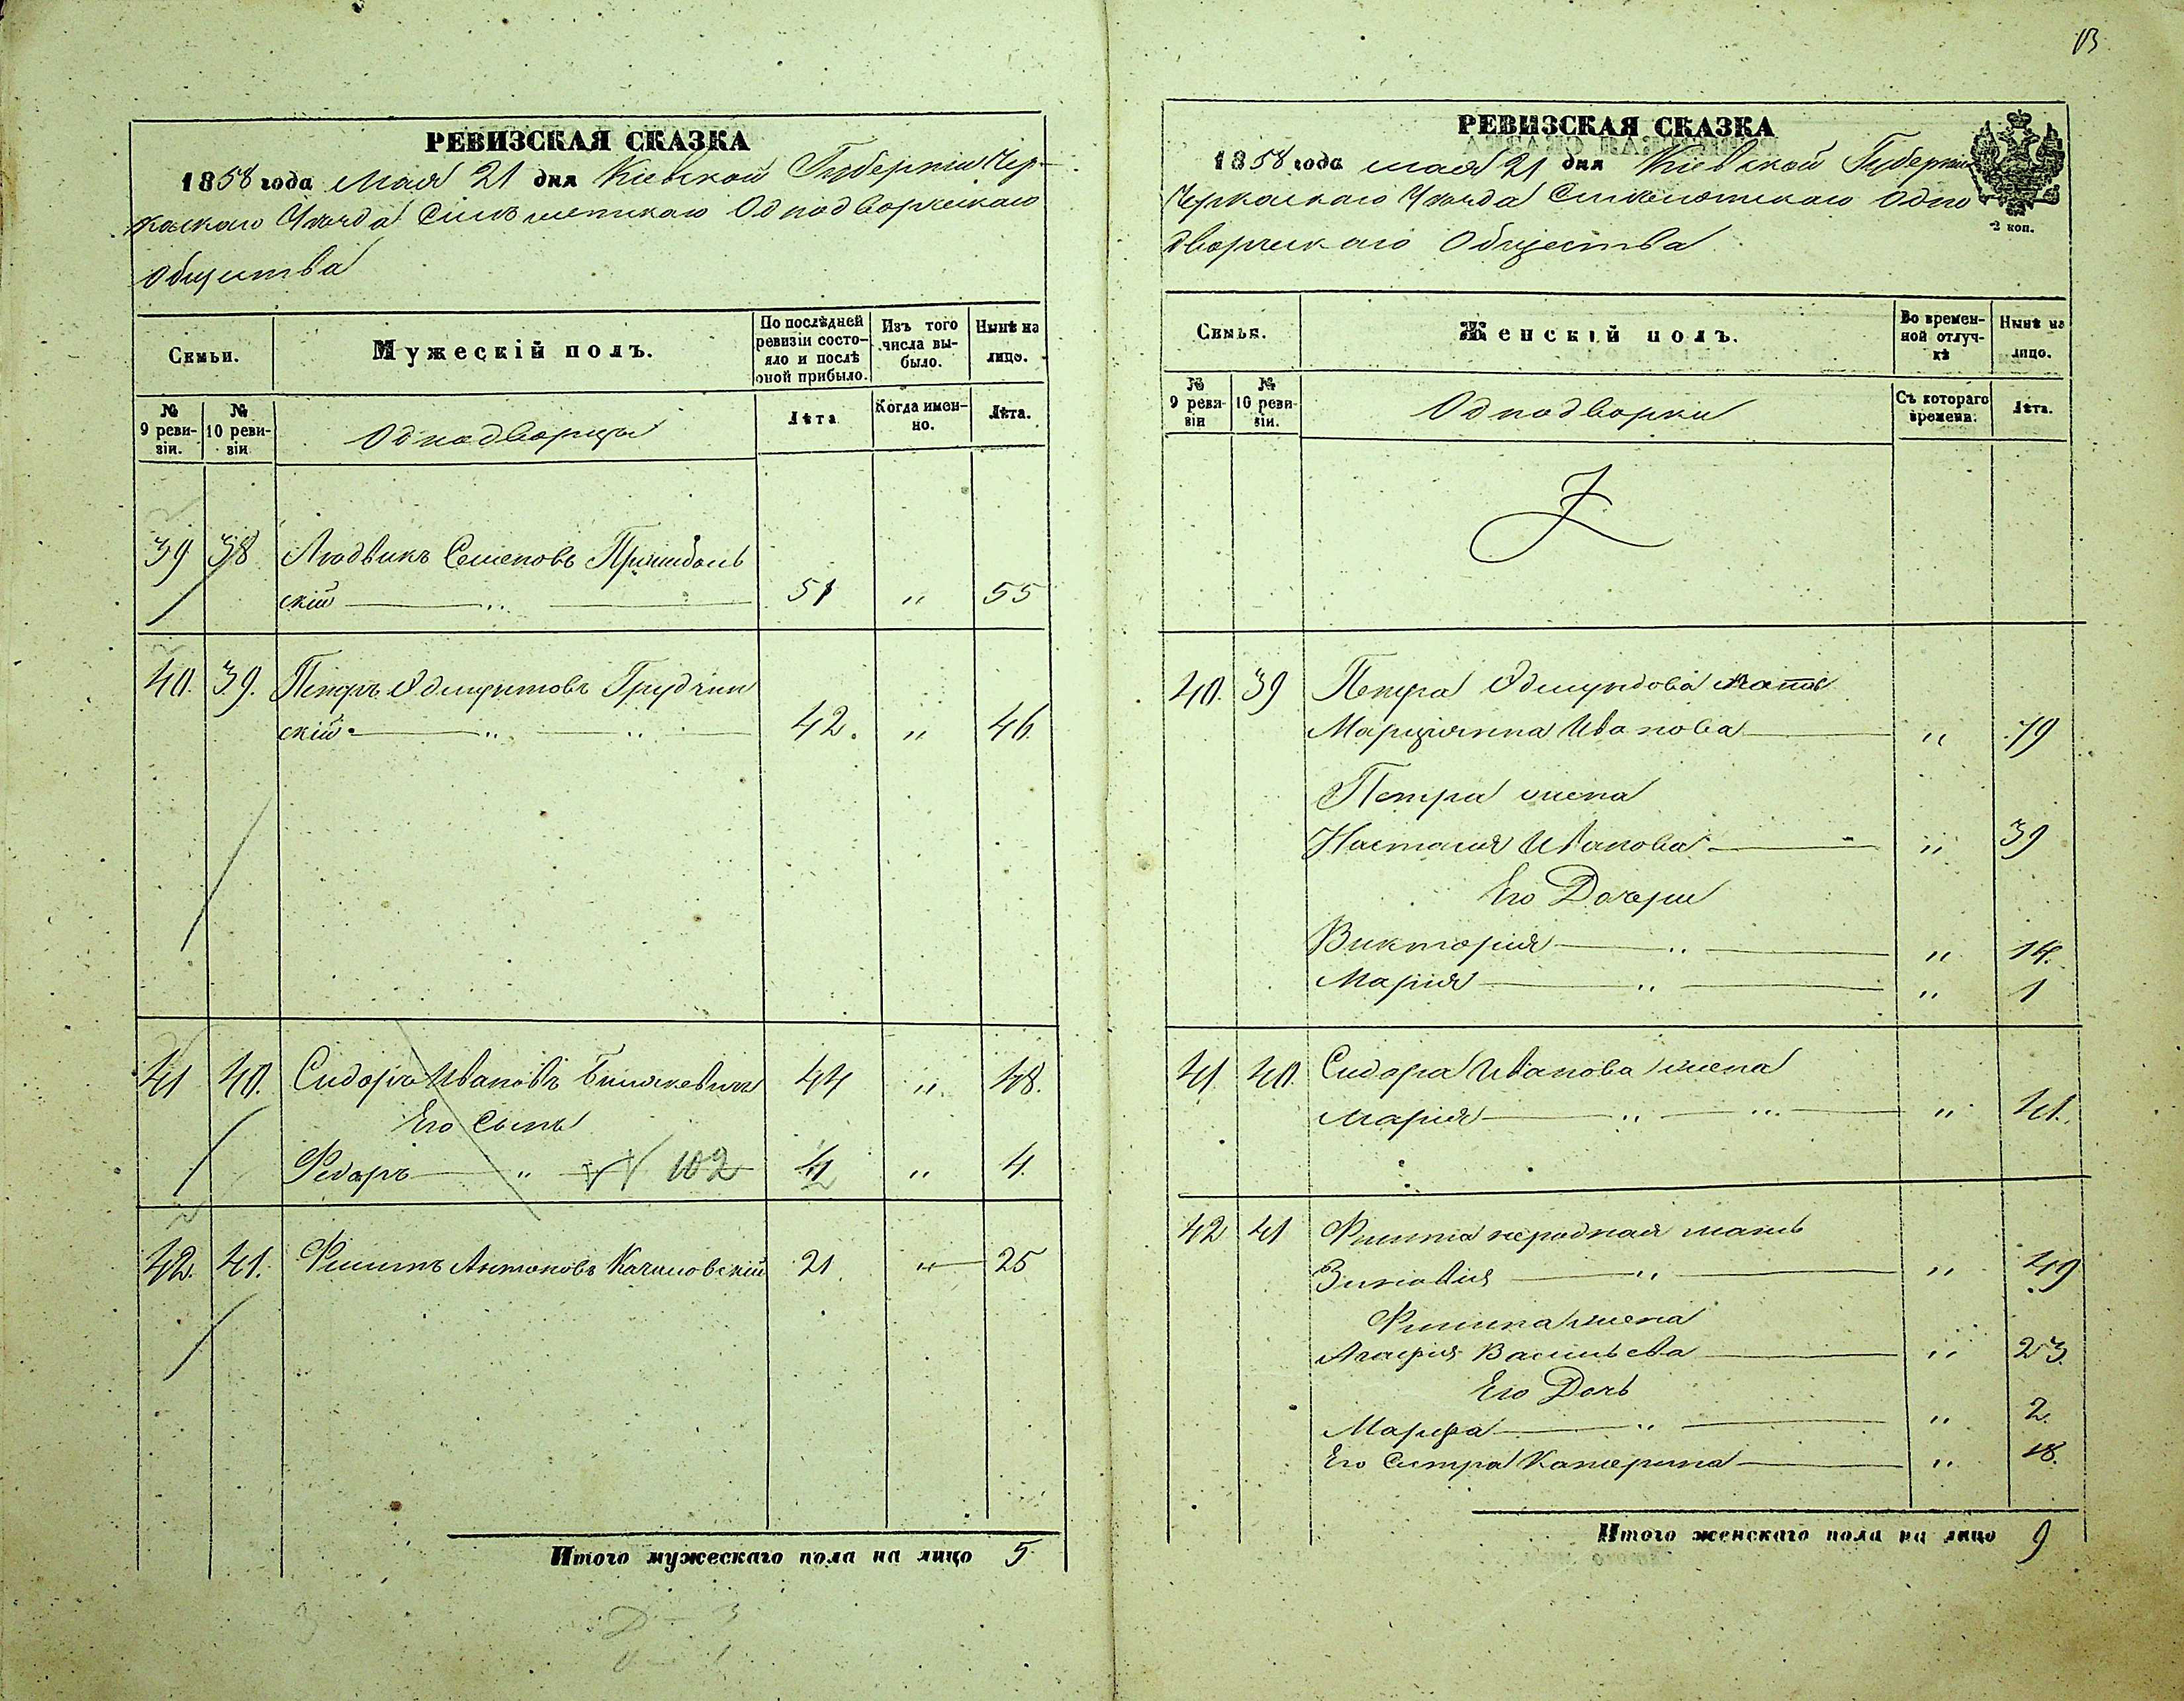 13
РЕВИЗСКАЯ СКАЗКА
1858 года Мая 21 дня Кіевской Губерніи Чер-
каскаго Уѣзда Однодворческаго
Общества
Семьи.
Мужескій полъ.
По послѣдней ревизіи состояло и послѣ оной прибыло.
Изъ того числа вы-было.
Нынѣ на лицо.
№ 9 реви-зіи.
№ 10 реви-зіи
Однодворцы
Лѣта
Когда имен-но.
Лѣта.
39 38 Людвикъ Семеновъ
скій 51 " 55
40. 39. Петръ Эдмунтовъ Грудзин
скій 42. " 46
41 40. Сидоръ Ивановъ 44 " 48.
Его Сынъ
Федоръ " № 102 " 4.
42. 41. Филипъ Антоновъ Качановскій 21 " 25
Итого мужескаго пола на лицо 5
РЕВИЗСКАЯ СКАЗКА
1858 года мая 21 дня Кіевской Губерніи
Черкаскаго Уѣзда Одно
дворческаго Общества
2 коп.
Семья.
Женскій полъ.
Во времен-ной отлуч-кѣ
Нынѣ на лицо.
№ 9 реви-зіи
№ 10 реви-зіи.
Однодворки
Съ котораго времени.
Лѣта.
40. 39 Петра Эдмундова мать
Марціянна Иванова " 79
Петра жена
Настасія Иванова " 39
Его Дочери
Викторія " 14.
Марія " 1
41 40. Сидора Иванова жена
Марія " 41.
42 41 Филипа неродная мать
Зиновія " 49
Филипа жена
Агафія Васильева " 23.
Его Дочь
Марфа " 2.
Его Сестра Катерина " 18.
Итого женскаго пола на лицо 9